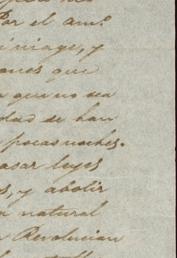 Por el am.º
viviage, y
ones que
a que no sea
dad se han
pocas noches.
asar leyes
s, y abolir
n natural
a Revolucion